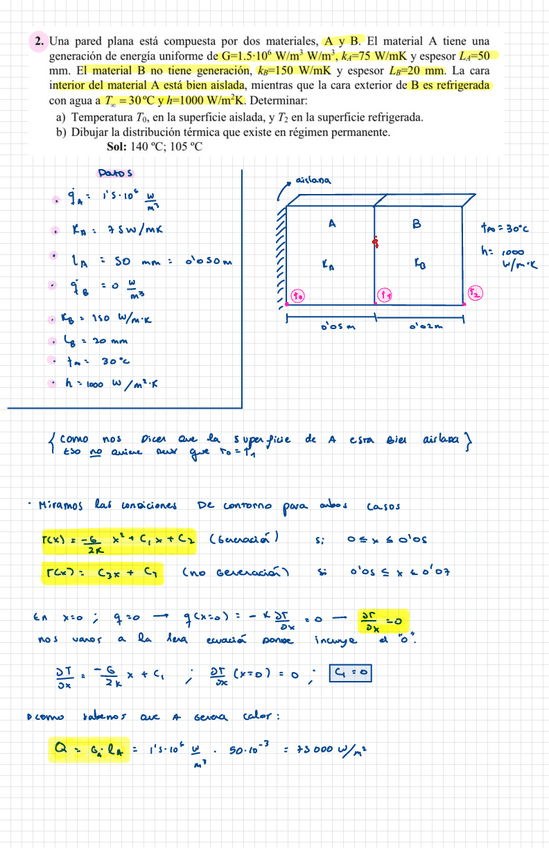 2. Una pared plana está compuesta por dos materiales, A y B. El material A tiene una
generación de energía uniforme de G=1.5·10⁶ W/m³ W/m³, kA=75 W/mK y espesor LA=50
mm. El material B no tiene generación, kB=150 W/mK y espesor LB=20 mm. La cara
interior del material A está bien aislada, mientras que la cara exterior de B es refrigerada
con agua a T∞ = 30 ºC y h=1000 W/m²K. Determinar:
a) Temperatura T₀, en la superficie aislada, y T₂ en la superficie refrigerada.
b) Dibujar la distribución térmica que existe en régimen permanente.
Sol: 140 ºC; 105 ºC
Datos
q̇A = 1'5·10⁶ W/m³
KA = 75 W/mK
LA = 50 mm = 0'050m
q̇B = 0 W/m³
KB = 150 W/m·K
LB = 20 mm
t∞ = 30°C
h = 1000 W/m²·K
aislana
A B
t∞ = 30°C
h = 1000
W/m·K
KA KB
T₀ T₁ T₂
0'05m 0'02m
{ como nos dicen que la superficie de A esta bien aislada }
Eso no quiere decir que T₀ = T₁
· Miramos las condiciones De contorno para ambos casos
T(x) = -G/2K x² + C₁x + C₂ (Generación) si 0 ≤ x ≤ 0'05
T(x) = C₃x + C₄ (no Generación) si 0'05 ≤ x ≤ 0'07
En x=0 ; q=0 → q(x=0) = -K ∂T/∂x = 0 — ∂T/∂x = 0
nos vamos a la 1era ecuación donde incluye el "0".
∂T/∂x = -G/2K x + C₁ ; ∂T/∂x (x=0) = 0 ; C₁ = 0
como sabemos que A genera calor:
Q = GA·LA = 1'5·10⁶ W/m³ · 50·10⁻³ = 75000 W/m²